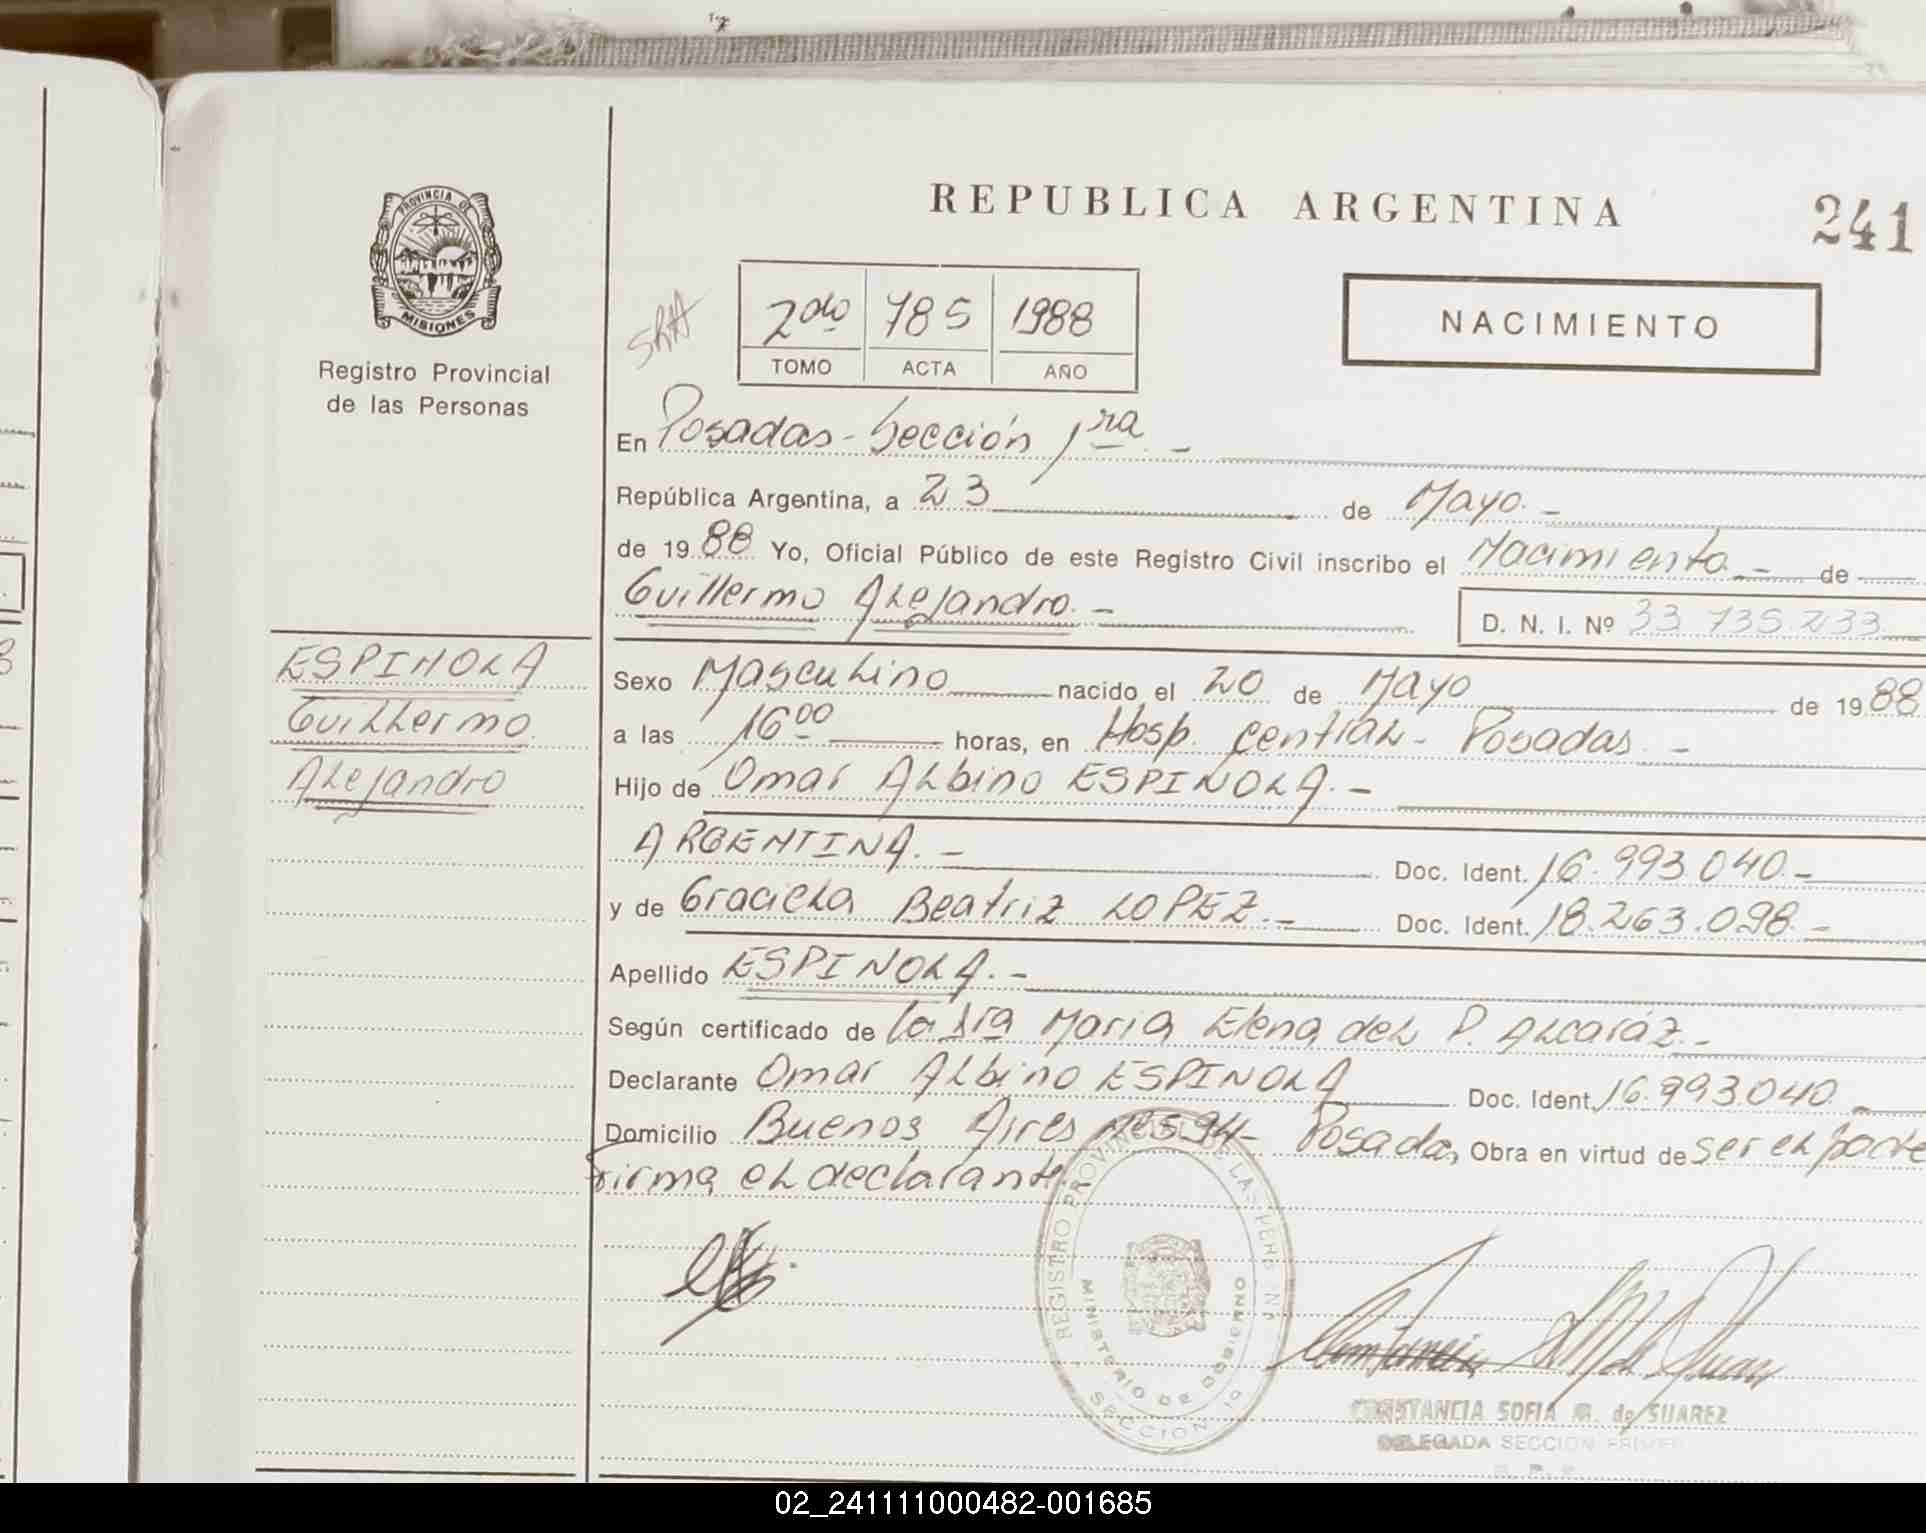 REPUBLICA ARGENTINA
241
PROVINCIA DE
MISIONES
Registro Provincial
de las Personas
2do 785 1988
TOMO ACTA AÑO
NACIMIENTO
En Posadas - Sección 1ra. -
República Argentina, a 23 de Mayo. -
de 1988 Yo, Oficial Público de este Registro Civil inscribo el Nacimiento - de
Guillermo Alejandro. -
D. N. I. Nº 33 735 233
ESPINOLA
Guillermo
Alejandro
Sexo Masculino nacido el 20 de Mayo de 1988
a las 16 00 horas, en Hosp. Central - Posadas. -
Hijo de Omar Albino ESPINOLA. -
ARGENTINA. - Doc. Ident. 16.993.040. -
y de Graciela Beatriz LOPEZ. - Doc. Ident. 18.263.098. -
Apellido ESPINOLA. -
Según certificado de la Dra Maria Elena del P. Alcaráz. -
Declarante Omar Albino ESPINOLA Doc. Ident. 16.993.040. -
Domicilio Buenos Aires Nº 594 - Posadas Obra en virtud de ser el padre
Firma el declarante.
REGISTRO PROVINCIAL DE LAS PERSONAS
MINISTERIO DE GOBIERNO
SECCION 1a
CONSTANCIA SOFIA M. de SUAREZ
DELEGADA SECCION PRIMERA
02_241111000482-001685